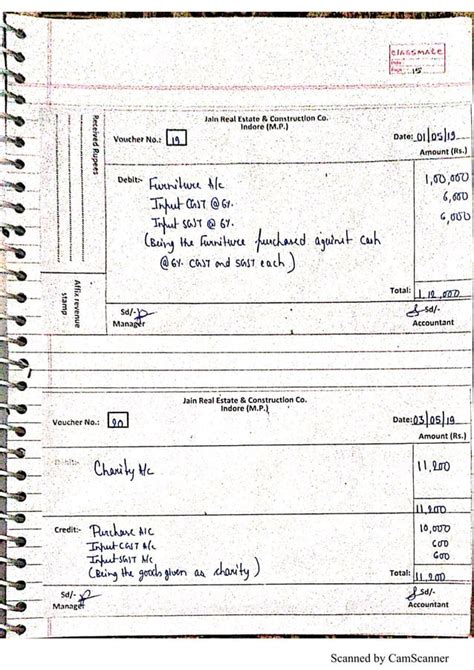 classmate
Date
Page 15
Jain Real Estate & Construction Co.
Indore (M.P.)
Voucher No.: 19
Date: 01/05/19
Amount (Rs.)
Received Rupees
Debit:- Furniture A/c 1,00,000
Input CGST @ 6%. 6,000
Input SGST @ 6%. 6,000
(Being the Furniture purchased against cash
@ 6% CGST and SGST each)
Total: 1,12,000
Affix revenue
stamp
Sd/- Sd/-
Manager Accountant
Jain Real Estate & Construction Co.
Indore (M.P.)
Voucher No.: 20
Date: 03/05/19
Amount (Rs.)
Debit:- Charity A/c 11,200
11,200
Credit:- Purchase A/c 10,000
Input CGST A/c 600
Input SGST A/c 600
(Being the goods given as charity)
Total: 11,200
Sd/- Sd/-
Manager Accountant
Scanned by CamScanner